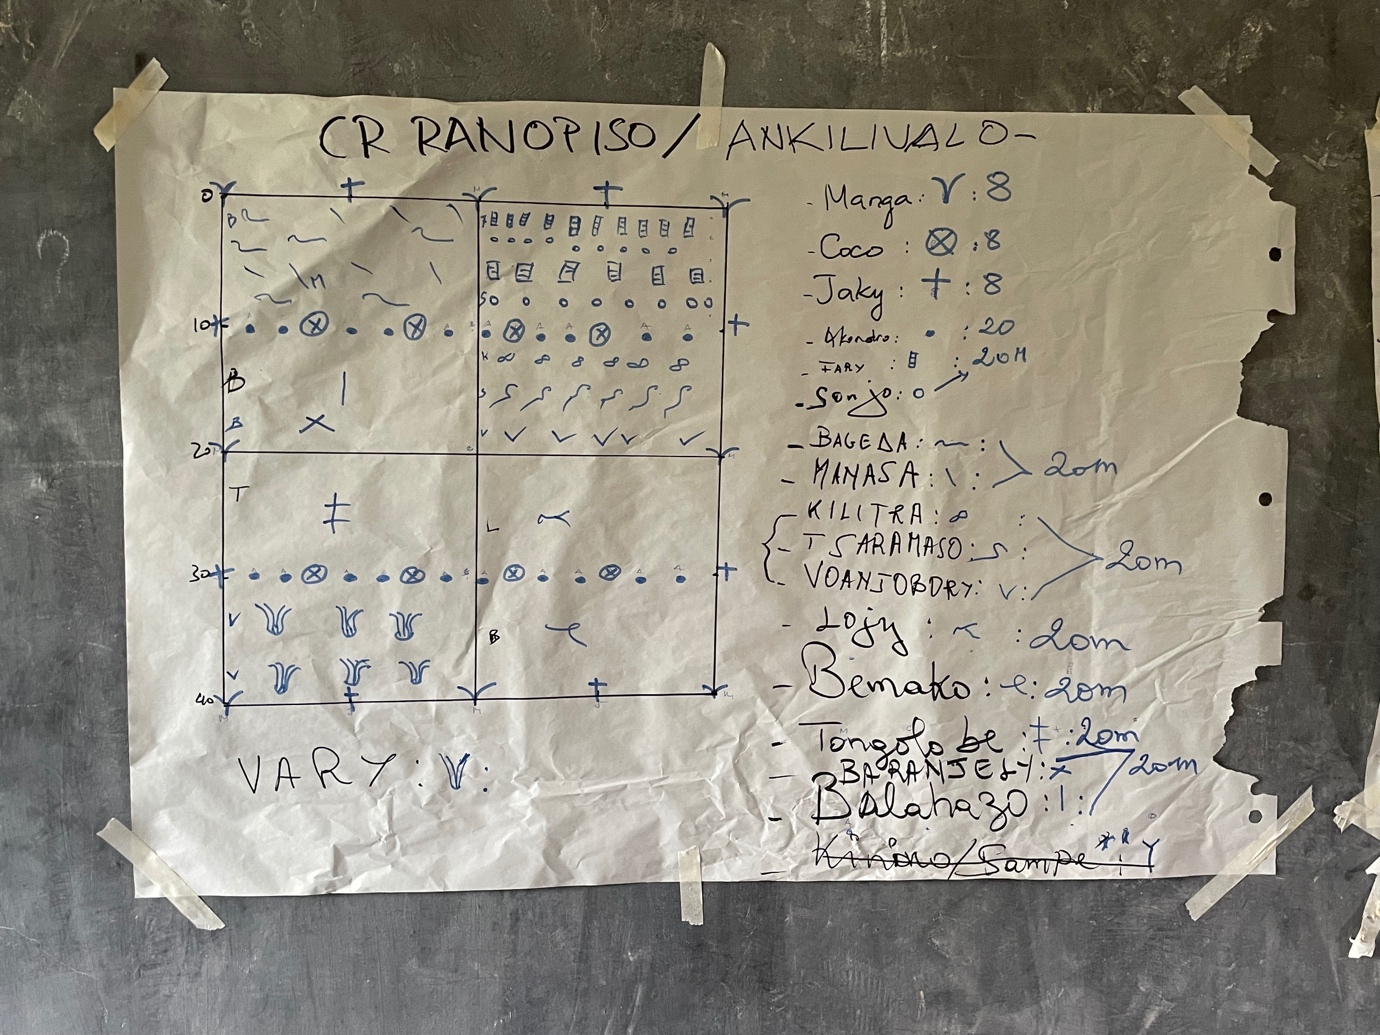 CR RANOPISO / ANKILIVALO -
0
10
20
30
40
B
M
B
B
T
V
V
S
K
S
V
L
B
VARY : V :
- Manga : V : 8
- Coco : ⊗ : 8
- Jaky : + : 8
- Akondro : • : 20
- FARY : 20M
- Sonjo : o
- BAGEDA : ~ : 20m
- MANASA : \ :
- KILITRA : ∞ :
- TSARAMASO : S : 20m
VOANJOBORY : v :
- Lojy : : 20m
- Bemako : : 20m
- Tongolo be : ‡ : 20m
- BARANJELY : x 20m
- Balahazo : | :
- Kinino / Sampe